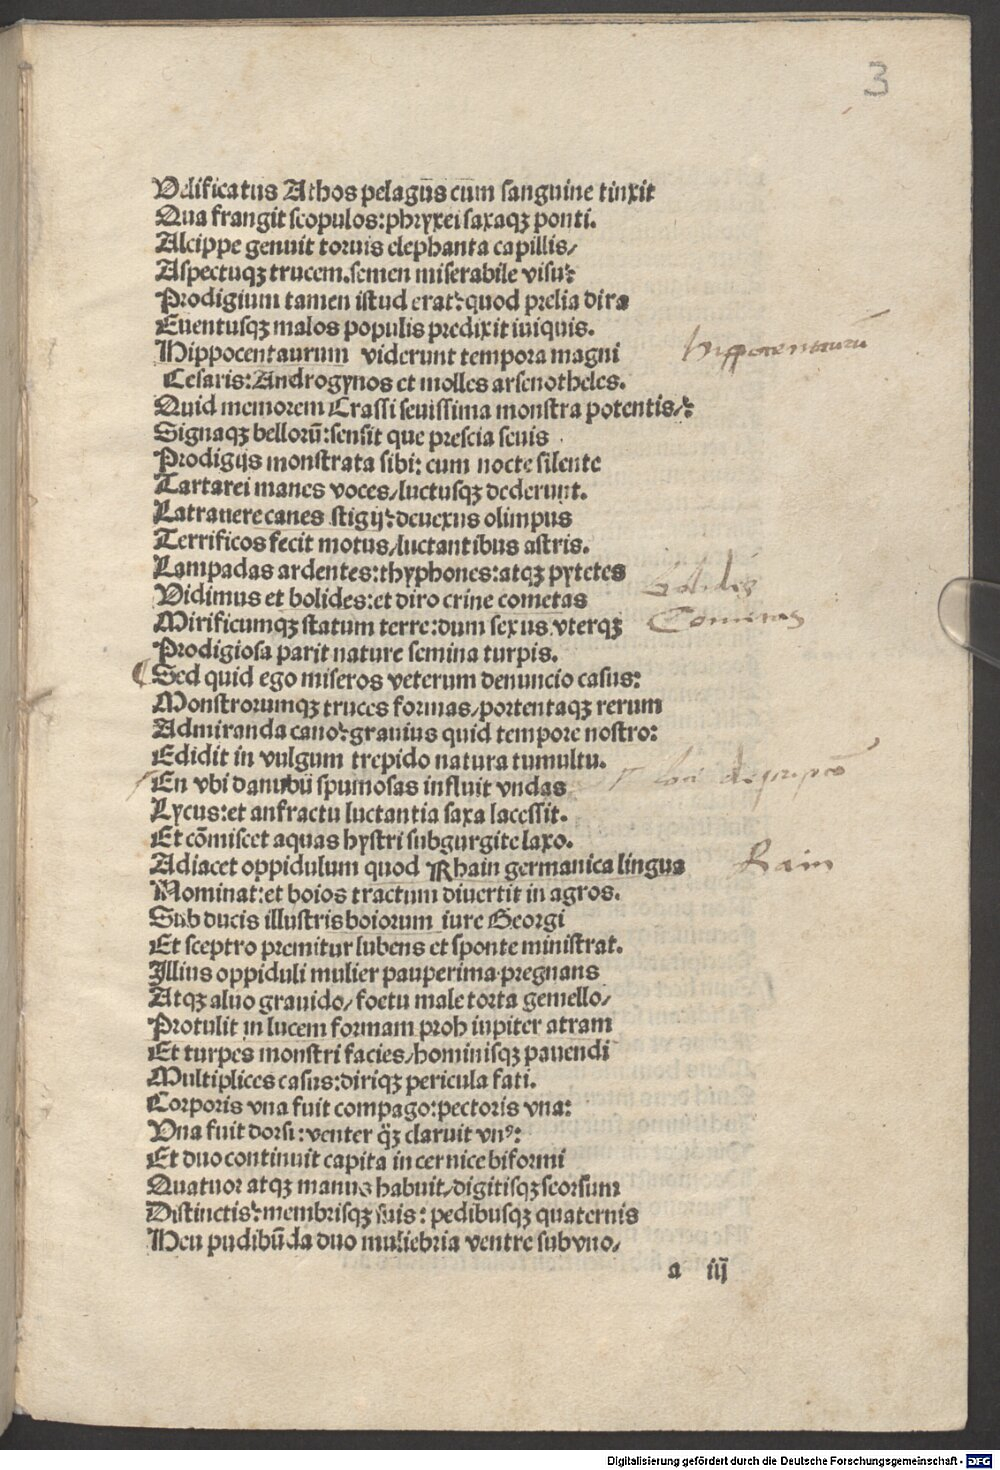 3
Velificatus Athos pelagūs cum sanguine tinxit
Qua frangit scopulos: phryxei saxaqꝫ ponti.
Alcippe genuit toruis elephanta capillis/
Aspectuqꝫ trucem. semen miserabile visu:
Prodigium tamen istud erat: quod prelia dira
Euentusqꝫ malos populis predixit iniquis.
Hippocentaurum viderunt tempora magni
hyppocentaurū
Cesaris: Androgynos et molles arsenotheles.
Quid memorem Crassi seuissima monstra potentis/:
Signaqꝫ bellorū: sensit que prescia seuis
Prodigijs monstrata sibi: cum nocte silente
Tartarei manes voces/ luctusqꝫ dederunt.
Latrauere canes stigij: deuexus olimpus
Terrificos fecit motus/ luctantibus astris.
Lampadas ardentes: thyphones: atqꝫ pytetes
Vidimus et bolides: et diro crine cometas
Bolides
Mirificumqꝫ statum terre: dum sexus vterqꝫ
Cometas
Prodigiosa parit nature semina turpis.
Sed quid ego miseros veterum denuncio casus:
Monstrorumqꝫ truces formas/ portentaqꝫ rerum
Admiranda cano: grauius quid tempore nostro:
Edidit in vulgum trepido natura tumultu.
En vbi danubū spumosas influit vndas
loci descriptō
Lycus: et anfractu luctantia saxa lacessit.
Et cōmiscet aquas hystri sub gurgite laxo.
Adiacet oppidulum quod Rhain germanica lingua
Rain
Nominat: et boios tractum diuertit in agros.
Sub ducis illustris boiorum iure Georgi
Et sceptro premitur lubens et sponte ministrat.
Illius oppiduli mulier pauperima pregnans
Atqꝫ aluo grauido/ foetu male torta gemello/
Protulit in lucem formam proh iupiter atram
Et turpes monstri facies/ hominisqꝫ pauendi
Multiplices casus: diriqꝫ pericula fati.
Corporis vna fuit compago: pectoris vna:
Vna fuit dorsi: venter qꝫ claruit vnꝰ:
Et duo continuit capita in ceruice biformi
Quatuor atqꝫ manus habuit/ digitisqꝫ seorsum
Distinctis: membrisqꝫ suis: pedibusqꝫ quaternis
Heu pudibūda duo muliebria ventre sub vno/
a iij
Digitalisierung gefördert durch die Deutsche Forschungsgemeinschaft - DFG